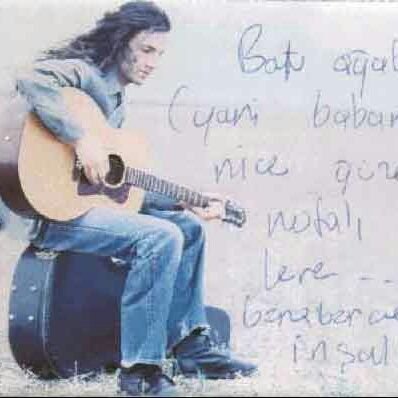 Batu ağab
(yani baban
nice güze
notalı,
lere ...
beraberce
inşal